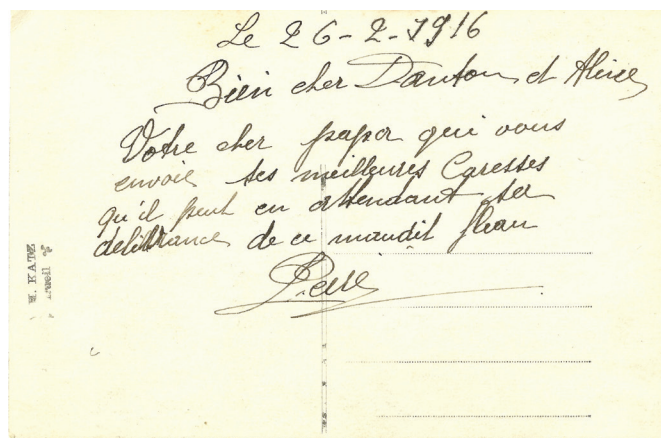 Le 26-2-1916
Bien cher Danton et Alice
Votre cher papa qui vous
envoie ses meilleures Caresses
qu'il peut en attendant sa
délivrance de ce maudit fléau
H. KATZ